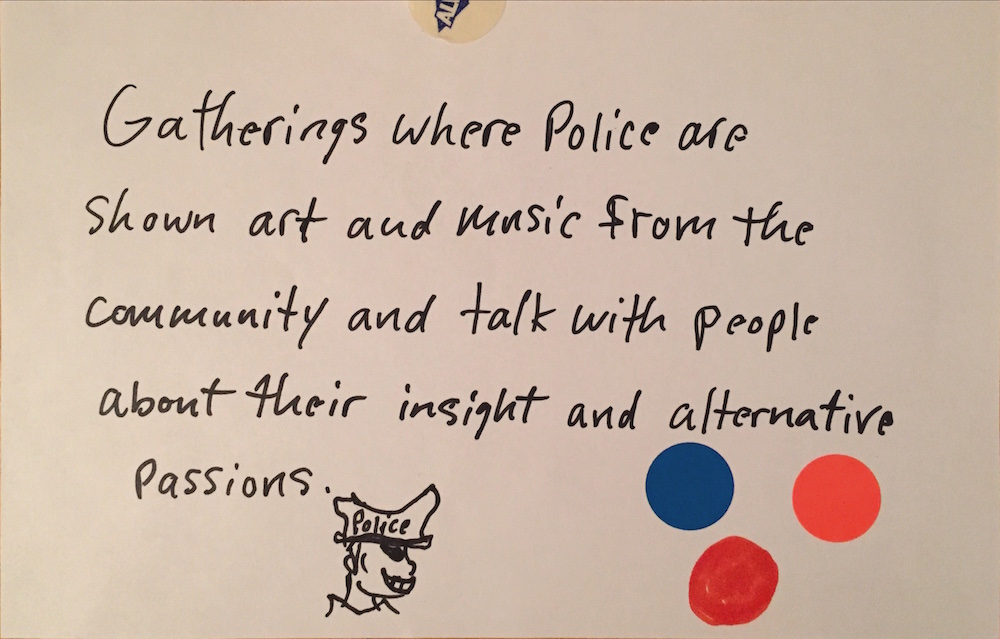 ALL
Gatherings where Police are
shown art and music from the
community and talk with people
about their insight and alternative
passions.
Police